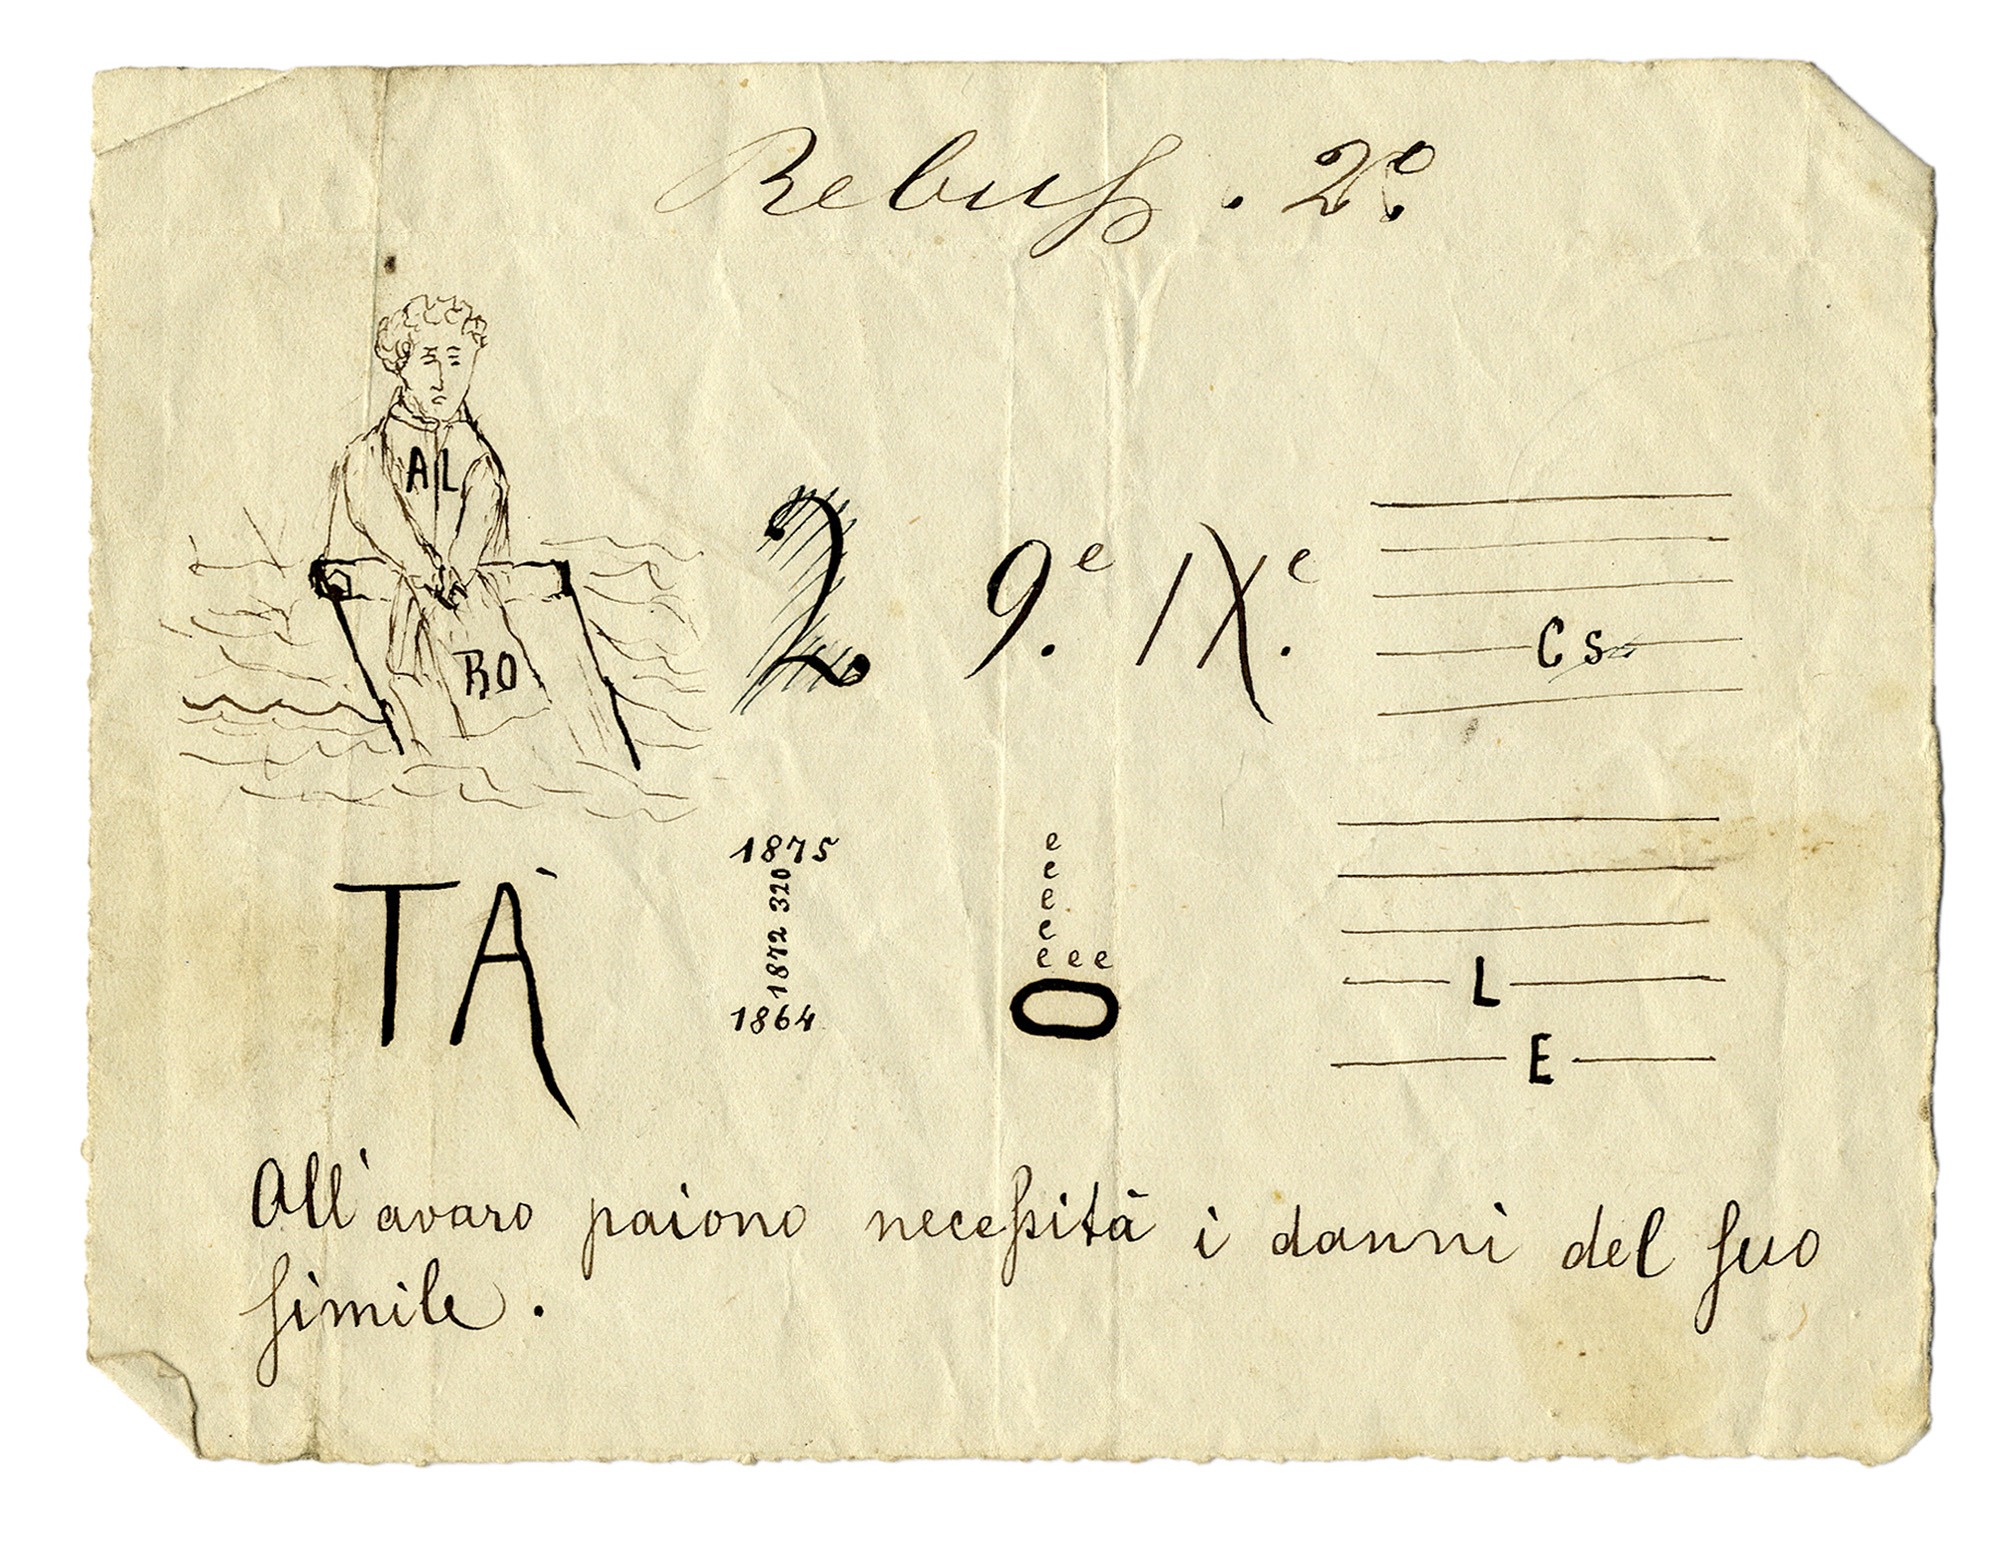 Rebuſs. 2º.
AL
RO
2 9.e IX.e
Cs
TÀ
1875
1872 320
1864
e
e
e
e
e e e
O
L
E
All'avaro paiono neceſsità i danni del ſuo
ſimile.